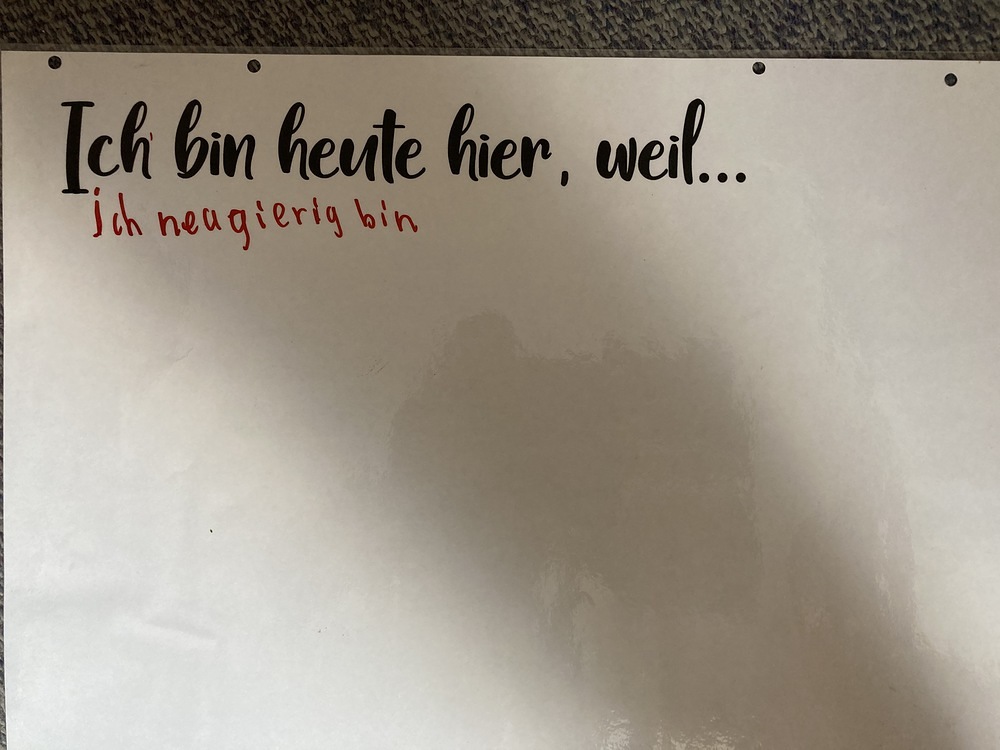 Ich bin heute hier, weil...
ich neugierig bin